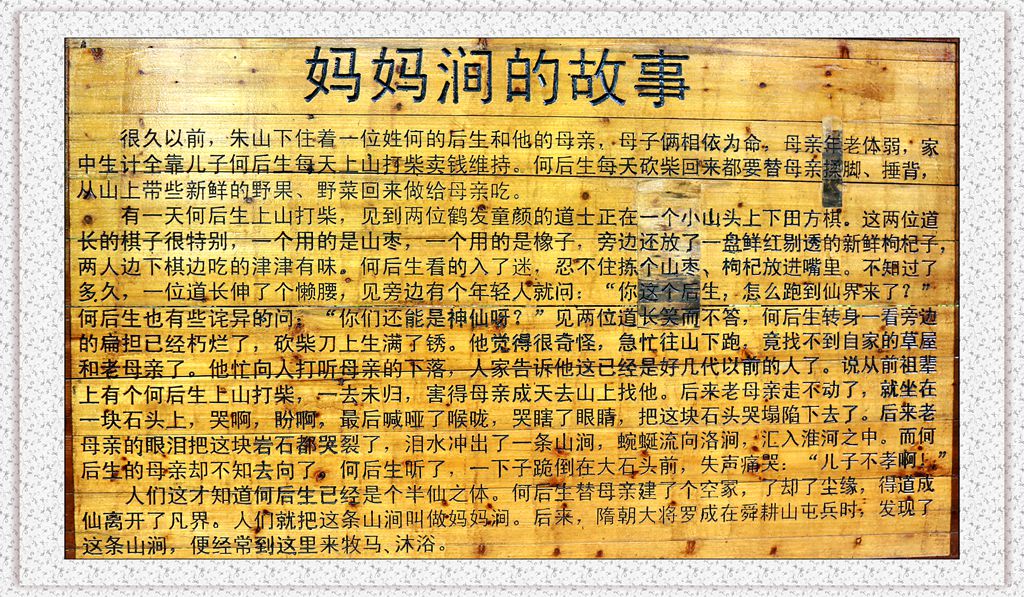 妈妈涧的故事
很久以前，朱山下住着一位姓何的后生和他的母亲，母子俩相依为命。母亲年老体弱，家
中生计全靠儿子何后生每天上山打柴卖钱维持。何后生每天砍柴回来都要替母亲揉脚、捶背，
从山上带些新鲜的野果、野菜回来做给母亲吃。
有一天何后生上山打柴，见到两位鹤发童颜的道士正在一个小山头上下田方棋。这两位道
长的棋子很特别，一个用的是山枣，一个用的是橡子，旁边还放了一盘鲜红剔透的新鲜枸杞子，
两人边下棋边吃的津津有味。何后生看的入了迷，忍不住拣个山枣、枸杞放进嘴里。不知过了
多久，一位道长伸了个懒腰，见旁边有个年轻人就问：“你这个后生，怎么跑到仙界来了？”
何后生也有些诧异的问：“你们还能是神仙呀？”见两位道长笑而不答，何后生转身一看旁边
的扁担已经朽烂了，砍柴刀上生满了锈。他觉得很奇怪，急忙往山下跑，竟找不到自家的草屋
和老母亲了。他忙向人打听母亲的下落，人家告诉他这已经是好几代以前的人了。说从前祖辈
上有个何后生上山打柴，一去未归，害得母亲成天去山上找他。后来老母亲走不动了，就坐在
一块石头上，哭啊，盼啊，最后喊哑了喉咙，哭瞎了眼睛，把这块石头哭塌陷下去了。后来老
母亲的眼泪把这块岩石都哭裂了，泪水冲出了一条山涧，蜿蜒流向洛涧，汇入淮河之中。而何
后生的母亲却不知去向了。何后生听了，一下子跪倒在大石头前，失声痛哭：“儿子不孝啊！”
人们这才知道何后生已经是个半仙之体。何后生替母亲建了个空冢，了却了尘缘，得道成
仙离开了凡界。人们就把这条山涧叫做妈妈涧。后来，隋朝大将罗成在舜耕山屯兵时，发现了
这条山涧，便经常到这里来牧马、沐浴。